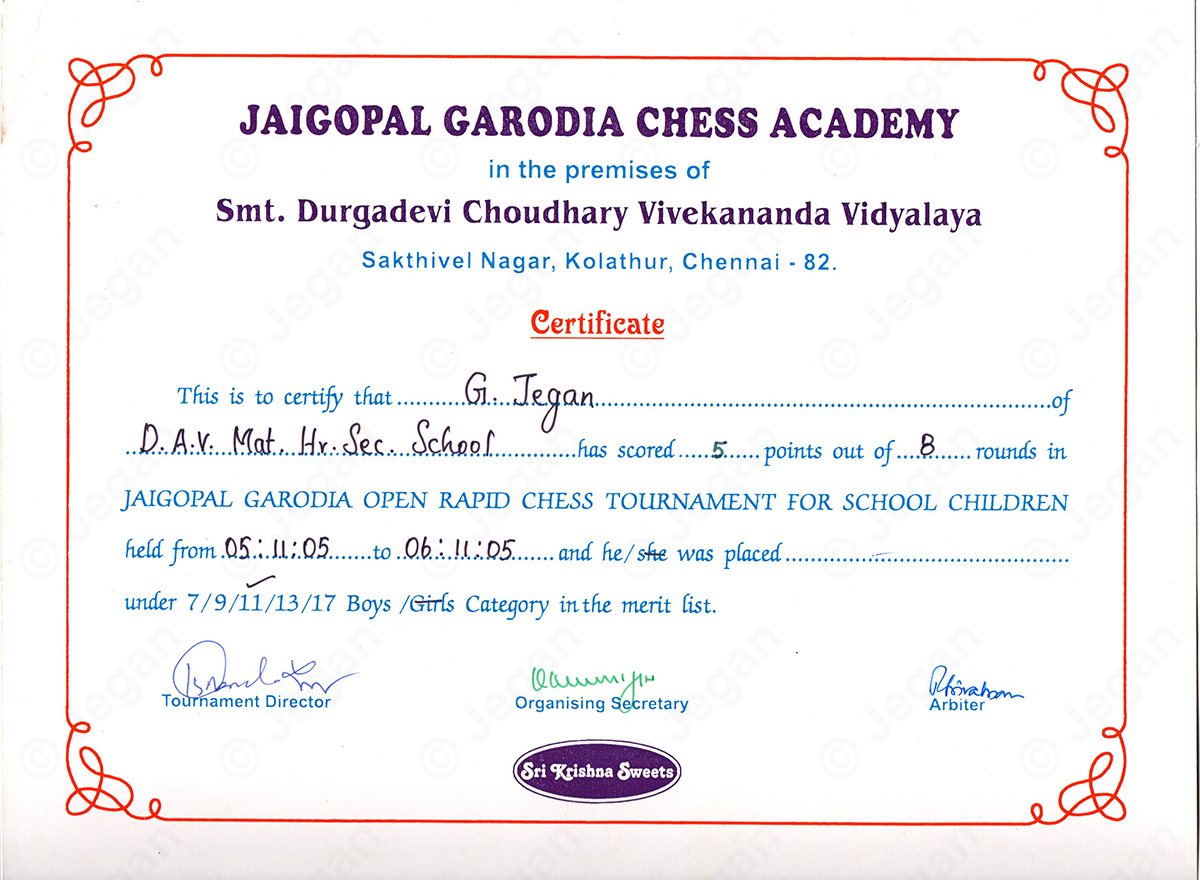 JAIGOPAL GARODIA CHESS ACADEMY
in the premises of
Smt. Durgadevi Choudhary Vivekananda Vidyalaya
Sakthivel Nagar, Kolathur, Chennai - 82.
Certificate
This is to certify that G. Jegan of
D.A.V. Mat. Hr. Sec. School has scored 5 points out of 8 rounds in
JAIGOPAL GARODIA OPEN RAPID CHESS TOURNAMENT FOR SCHOOL CHILDREN
held from 05:11:05 to 06:11:05 and he/she was placed -
under 7/9/11/13/17 Boys /Girls Category in the merit list.
Tournament Director
Organising Secretary
Arbiter
Sri Krishna Sweets
© Jegan